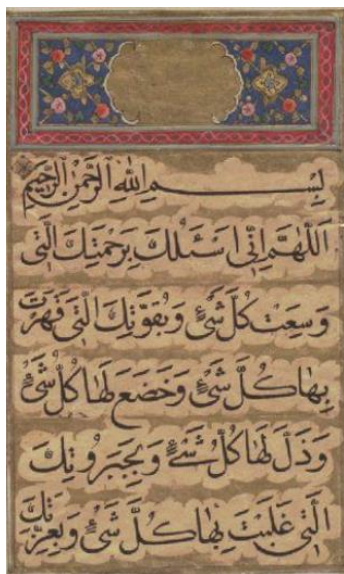 بِسْمِ اللهِ الرَّحْمٰنِ الرَّحِيمِ
اَللّٰهُمَّ اِنِّي اَسْئَلُكَ بِرَحْمَتِكَ الَّتِي
وَسِعَتْ كُلَّ شَيْءٍ وَبِقُوَّتِكَ الَّتِي قَهَرْتَ
بِهَا كُلَّ شَيْءٍ وَخَضَعَ لَهَا كُلُّ شَيْءٍ
وَذَلَّ لَهَا كُلُّ شَيْءٍ وَبِجَبَرُوتِكَ
الَّتِي غَلَبْتَ بِهَا كُلَّ شَيْءٍ وَبِعِزَّتِكَ